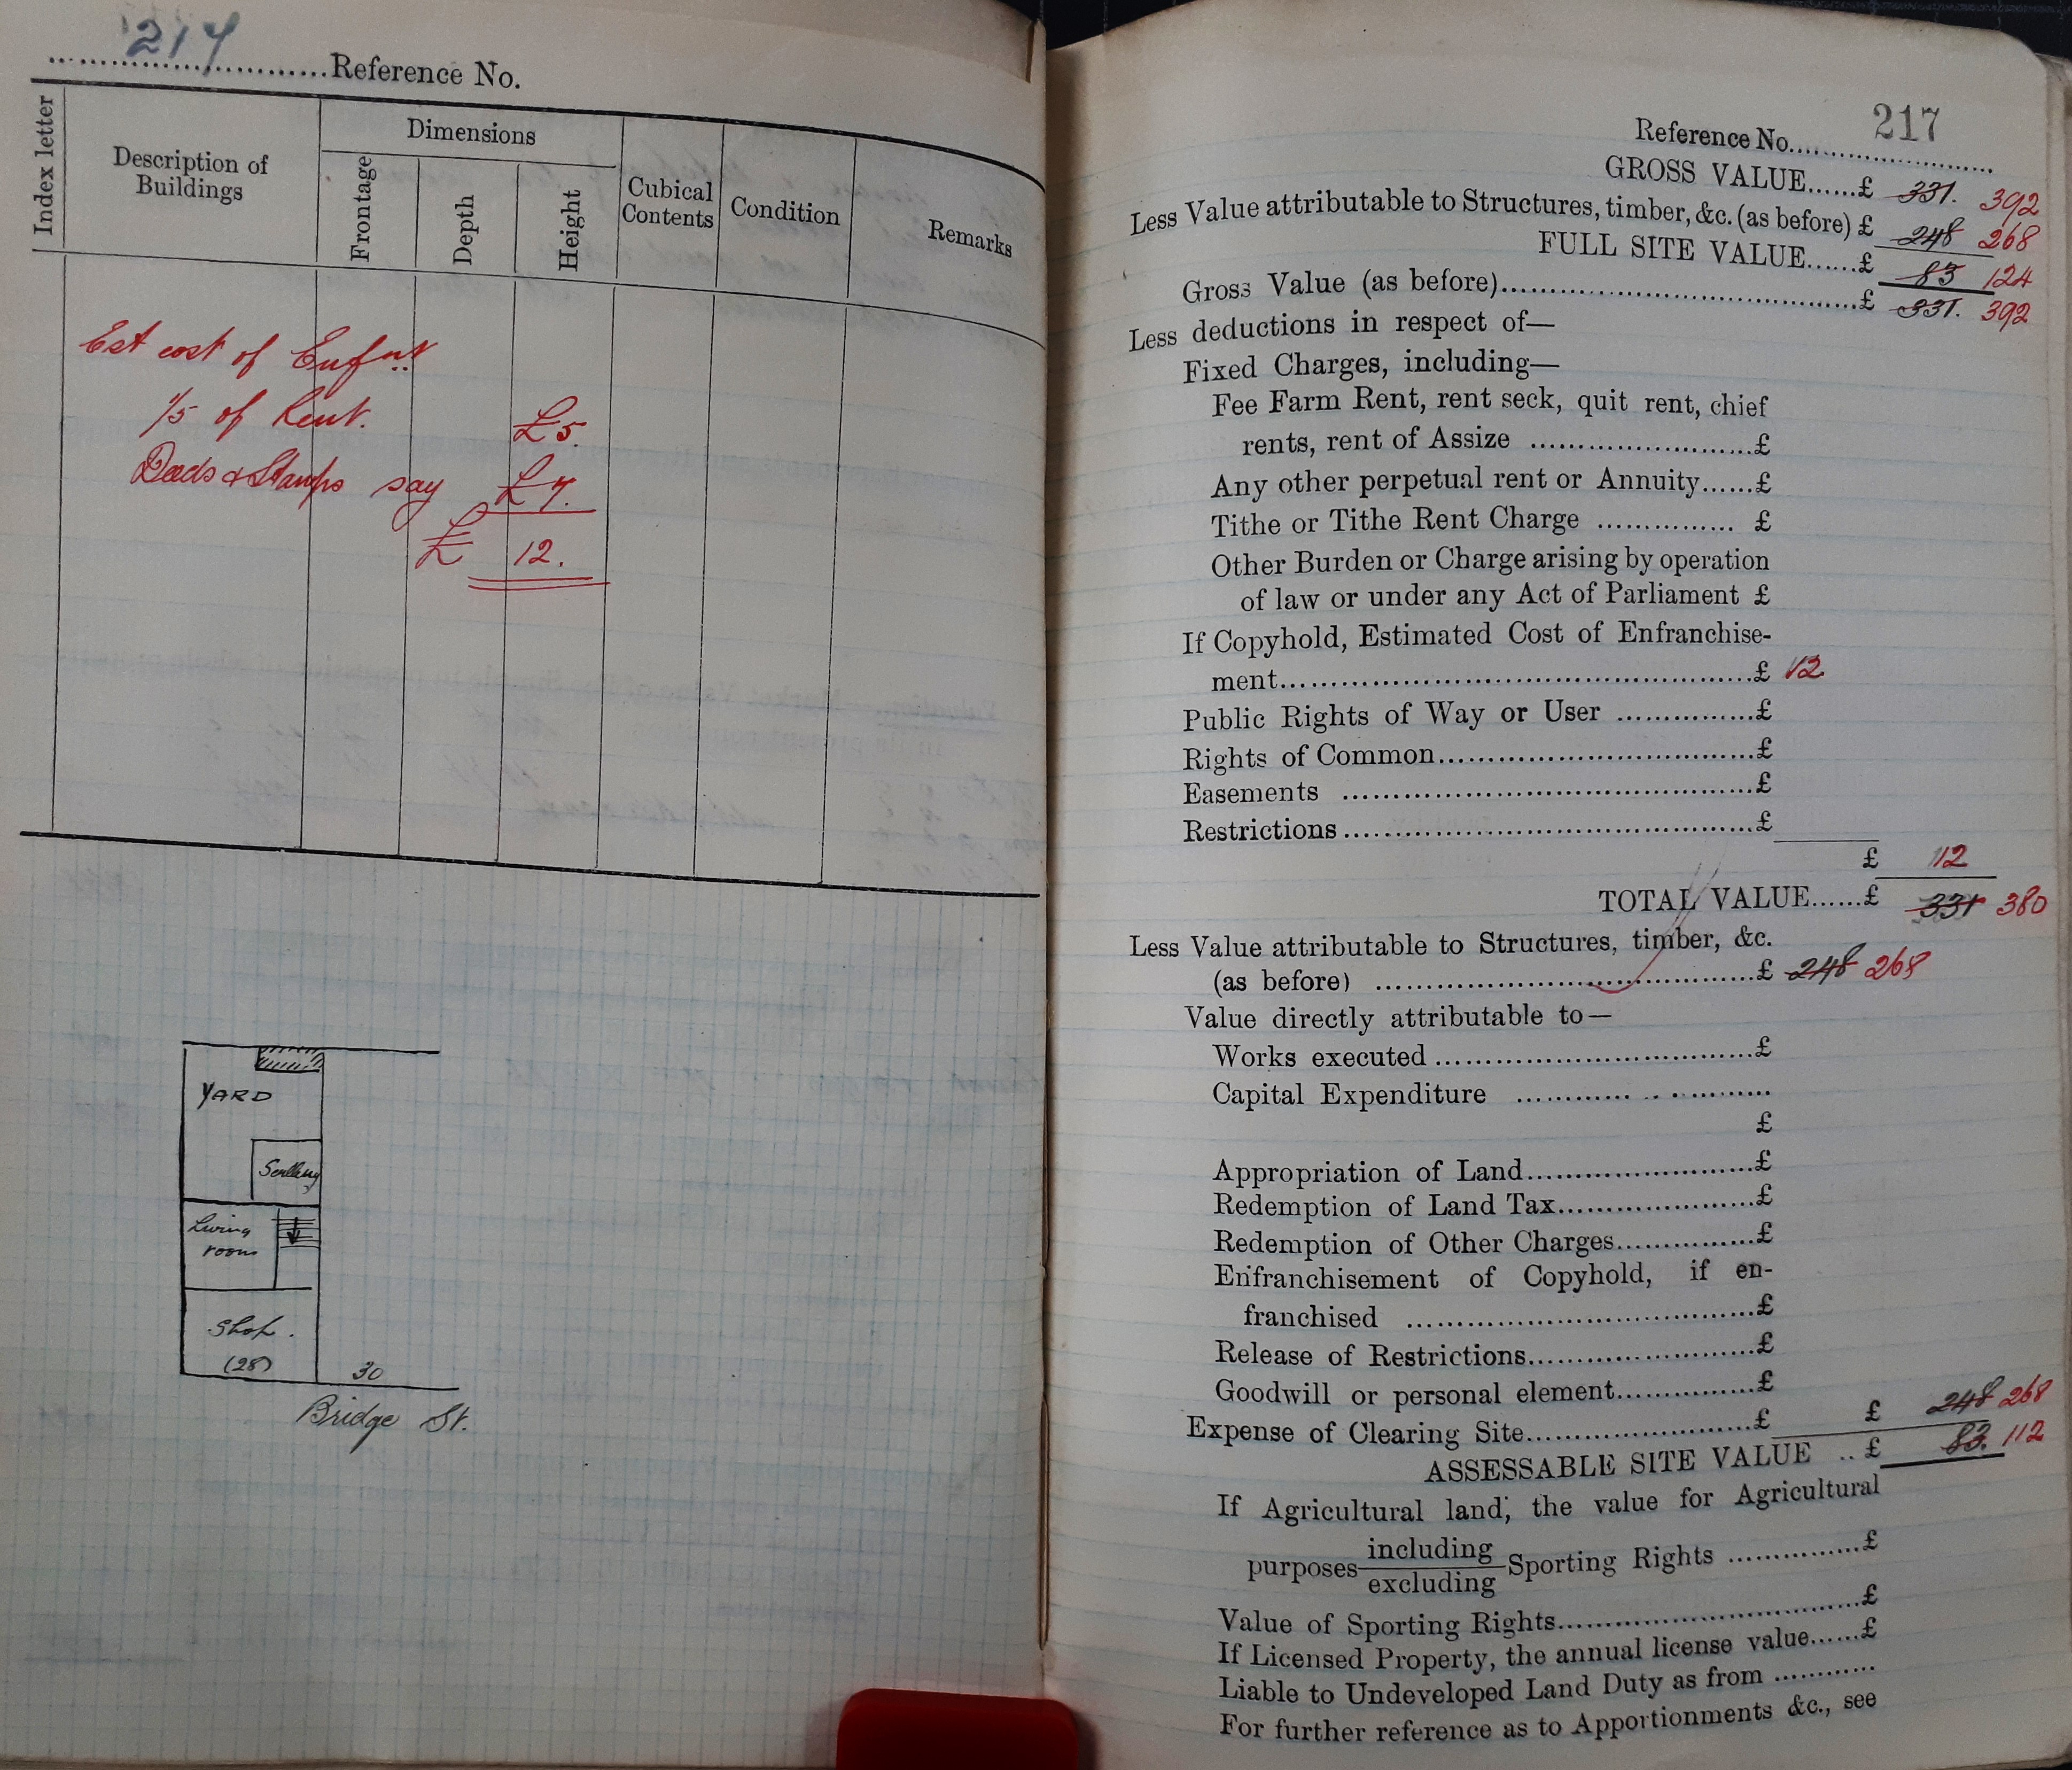 217
Reference No.
Index letter
Description of Buildings
Dimensions
Frontage
Depth
Height
Cubical Contents
Condition
Remarks
Est cost of Enf.nt
1/5 of Rent. £5.
Deeds & Stamps say £7.
£ 12.
YARD
Scullery
Living room
Shop.
(28) 30
Bridge St.
Reference No. 217
GROSS VALUE......£ 331. 392
Less Value attributable to Structures, timber, &c. (as before) £ 248 268
FULL SITE VALUE......£ 83 124
Gross Value (as before)......£ 331. 392
Less deductions in respect of—
Fixed Charges, including—
Fee Farm Rent, rent seck, quit rent, chief
rents, rent of Assize ......£
Any other perpetual rent or Annuity......£
Tithe or Tithe Rent Charge ...... £
Other Burden or Charge arising by operation
of law or under any Act of Parliament £
If Copyhold, Estimated Cost of Enfranchise-
ment......£ 12
Public Rights of Way or User ......£
Rights of Common......£
Easements ......£
Restrictions......£
£ 12
TOTAL VALUE......£ 331 380
Less Value attributable to Structures, timber, &c.
(as before) ......£ 248 268
Value directly attributable to—
Works executed......£
Capital Expenditure ......
£
Appropriation of Land......£
Redemption of Land Tax......£
Redemption of Other Charges......£
Enfranchisement of Copyhold, if en-
franchised ......£
Release of Restrictions......£
Goodwill or personal element......£
Expense of Clearing Site......£ £ 248 268
ASSESSABLE SITE VALUE .. £ 83. 112
If Agricultural land, the value for Agricultural
purposes including
excluding Sporting Rights ......£
Value of Sporting Rights......£
If Licensed Property, the annual license value......£
Liable to Undeveloped Land Duty as from ......
For further reference as to Apportionments &c., see